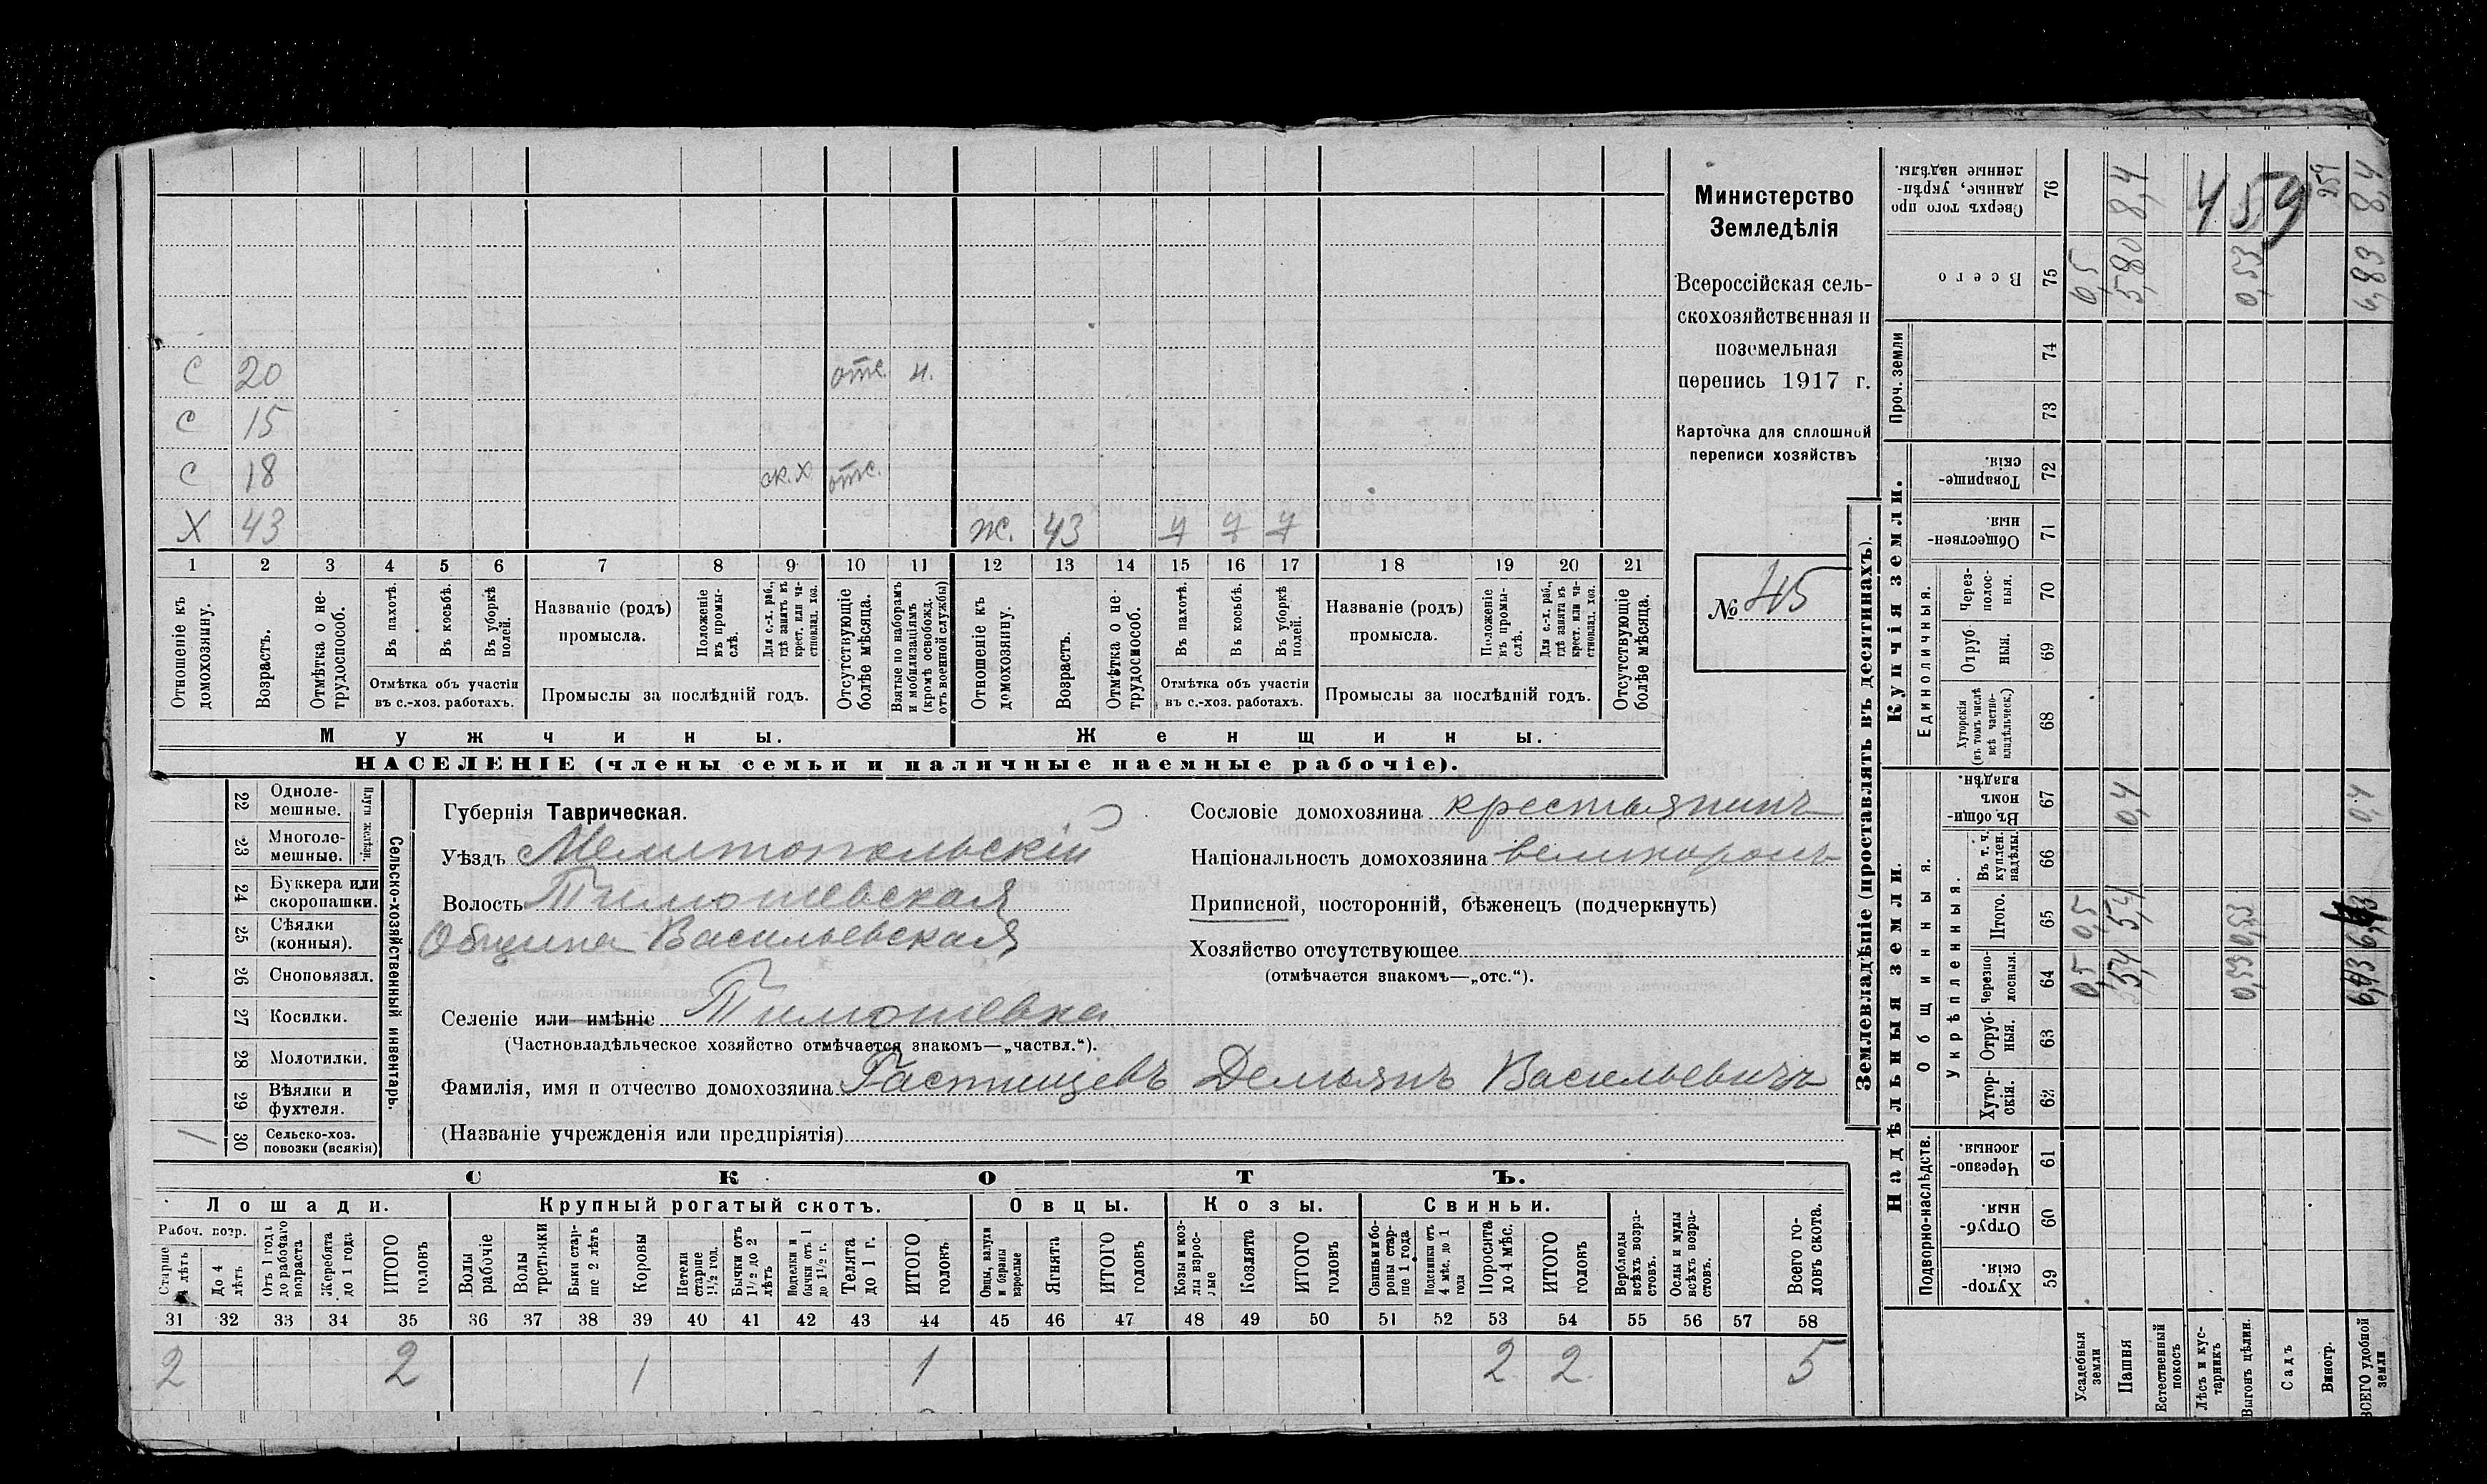 С 20 отс. н.
С 15
С 18 ск.х отс.
Х 43 Ж. 43 7 7 7
1 2 3 4 5 6 7 8 9 10 11 12 13 14 15 16 17 18 19 20 21
Отношеніе къ домохозяину.
Возрастъ.
Отмѣтка о нетрудоспособ.
Въ пахотѣ.
Въ косьбѣ.
Въ уборкѣ полей.
Отмѣтка объ участіи
въ с.-хоз. работахъ.
Названіе (родъ)
промысла.
Положеніе въ промыслѣ.
Для с.-х. раб., гдѣ занятъ въ крест. или частновлад. хоз.
Промыслы за послѣдній годъ.
Отсутствующіе болѣе мѣсяца.
Взятые по наборамъ и мобилизаціямъ (кромѣ освобожд. отъ военной службы)
Отношеніе къ домохозяину.
Возрастъ.
Отмѣтка о нетрудоспособ.
Въ пахотѣ.
Въ косьбѣ.
Въ уборкѣ полей.
Отмѣтка объ участіи
въ с.-хоз. работахъ.
Названіе (родъ)
промысла.
Положеніе въ промыслѣ.
Для с.-х. раб., гдѣ занята въ крест. или частновлад. хоз.
Промыслы за послѣдній годъ.
Отсутствующіе болѣе мѣсяца.
Мужчины. Женщины.
НАСЕЛЕНІЕ (члены семьи и наличные наемные рабочіе).
Министерство
Земледѣлія
Всероссійская сель-
скохозяйственная и
поземельная
перепись 1917 г.
Карточка для сплошной
переписи хозяйствъ
№ 45
Сельско-хозяйственный инвентарь.
Плуги желѣзн.
22 Одноле-
мешные.
23 Многоле-
мешные.
24 Буккера или
скоропашки.
25 Сѣялки
(конныя).
26 Сноповязал.
27 Косилки.
28 Молотилки.
29 Вѣялки и
фухтеля.
1 30 Сельско-хоз.
повозки (всякія)
Губернія Таврическая.
Уѣздъ Мелитопольскій
Волость Тимошевская
Община Васильевская
Селеніе или имѣніе Тимошевка
(Частновладѣльческое хозяйство отмѣчается знакомъ—„частвл.“).
Фамилія, имя и отчество домохозяина Растищевъ Демьянъ Васильевичъ
(Названіе учрежденія или предпріятія)
Сословіе домохозяина крестьянинъ
Національность домохозяина великоросъ
Приписной, посторонній, бѣженецъ (подчеркнуть)
Хозяйство отсутствующее
(отмѣчается знакомъ—„отс.“).
СКОТЪ.
Лошади. Крупный рогатый скотъ. Овцы. Козы. Свиньи.
Рабоч. возр.
Старше 4 лѣтъ
До 4 лѣтъ
Отъ 1 года до рабочаго возраста
Жеребята до 1 года
ИТОГО головъ
Волы рабочіе
Волы третьяки
Быки старше 2 лѣтъ
Коровы
Нетели старше 1½ год.
Бычки отъ 1½ до 2 лѣтъ
Подтелки и бычки отъ 1 до 1½ г.
Телята до 1 г.
ИТОГО головъ
Овцы, валухи и бараны взрослые
Ягнята
ИТОГО головъ
Козы и козлы взрослые
Козлята
ИТОГО головъ
Свиньи и боровы старше 1 года
Подсвинки отъ 4 мѣс. до 1 года
Поросята до 4 мѣс.
ИТОГО головъ
Верблюды всѣхъ возрастовъ.
Ослы и мулы всѣхъ возрастовъ.
Всего головъ скота.
31 32 33 34 35 36 37 38 39 40 41 42 43 44 45 46 47 48 49 50 51 52 53 54 55 56 57 58
2 2 1 1 2 2 5
Землевладѣніе (проставлять въ десятинахъ).
Надѣльныя земли. Купчія земли. Проч. земли
Подворно-наслѣдств. Общинныя. Укрѣпленныя. Единоличныя.
Хуторскія. 59
Отрубныя. 60
Черезполосныя. 61
Хуторскія. 62
Отрубныя. 63
Черезполосныя. 64
Итого. 65
Въ т. ч. куплен. надѣлы. 66
Въ общинномъ владѣн. 67
Хуторскія (въ томъ числѣ всѣ частновладѣльческ.) 68
Отрубныя. 69
Черезполосныя. 70
Общественныя. 71
Товарищескія. 72
73
74
Всего 75
Сверхъ того проданные, укрѣпленные надѣлы. 76
Усадебныя земли 0,5 0,5 0,5
Пашня 5,4 5,4 0,4 5,80 8,4
Естественный покосъ
Лѣсъ и кустарникъ
Выгонъ цѣлин. 0,53 0,53 0,53
Садъ
Виногр.
ВСЕГО удобной земли 0,4 6,83 8,4
459
259